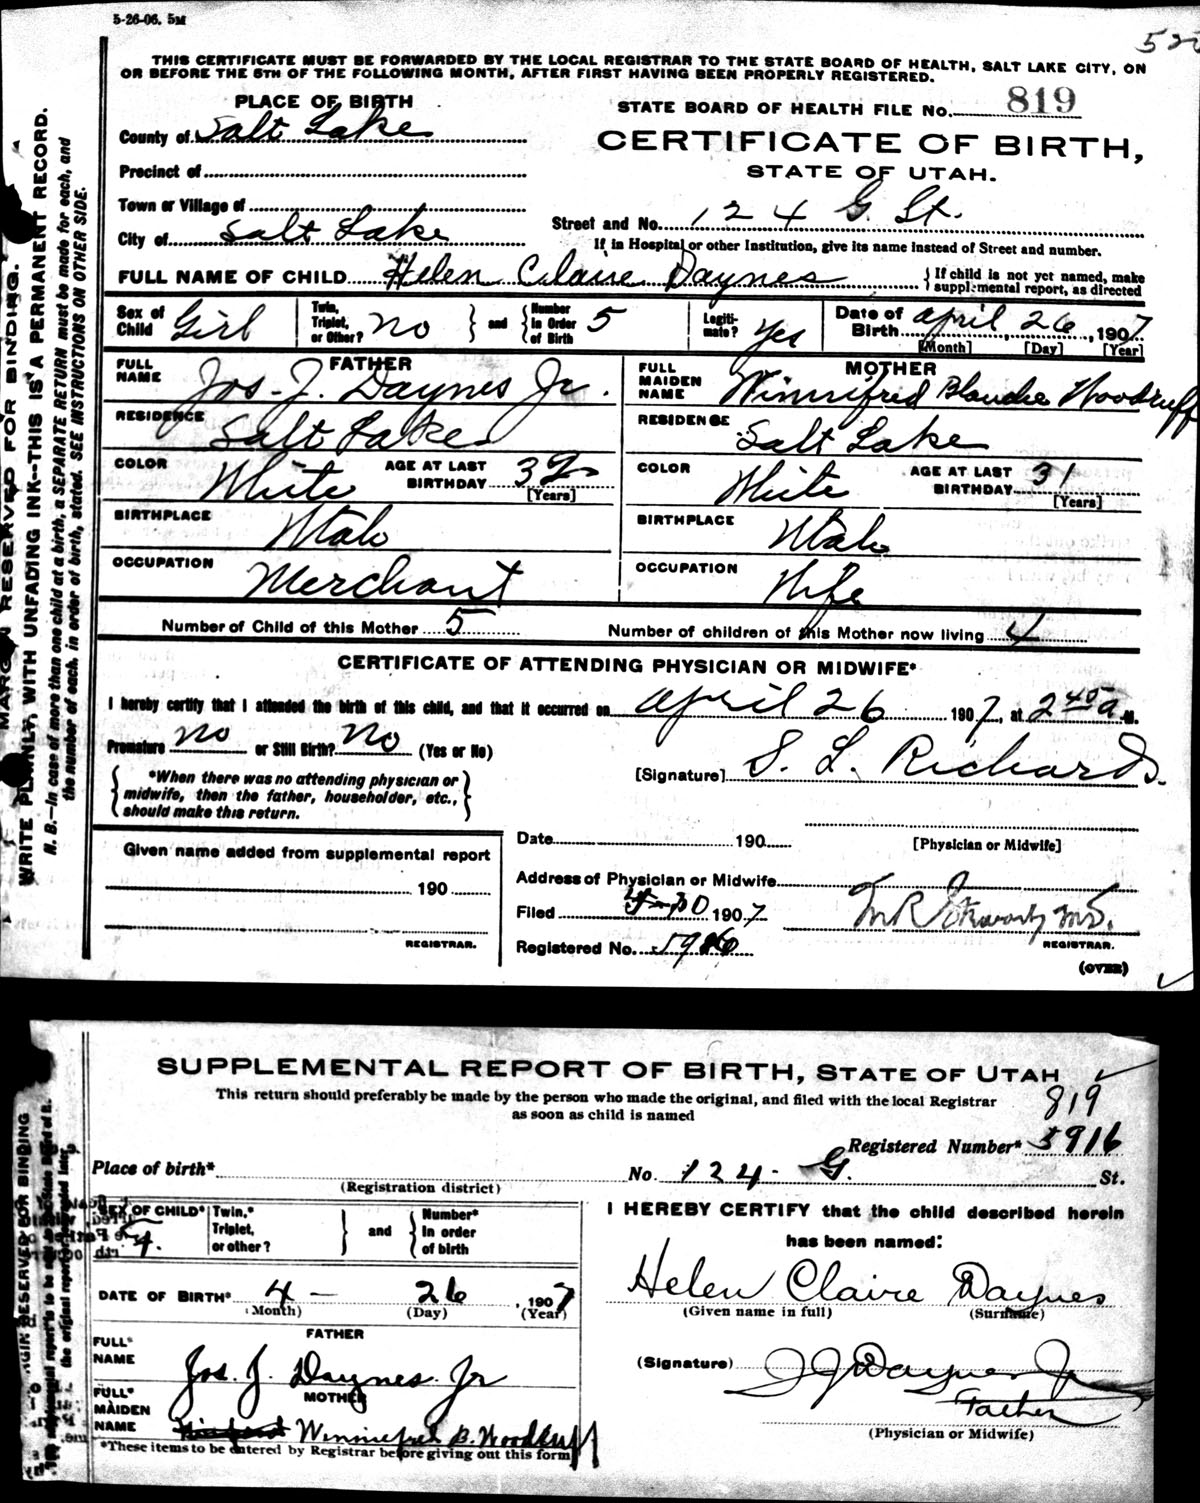 5-26-06. 5M
THIS CERTIFICATE MUST BE FORWARDED BY THE LOCAL REGISTRAR TO THE STATE BOARD OF HEALTH, SALT LAKE CITY, ON
OR BEFORE THE 5TH OF THE FOLLOWING MONTH, AFTER FIRST HAVING BEEN PROPERLY REGISTERED.
PLACE OF BIRTH
STATE BOARD OF HEALTH FILE No. 819
County of Salt Lake
CERTIFICATE OF BIRTH,
STATE OF UTAH.
Precinct of
Town or Village of
Street and No. 124 G St.
City of Salt Lake
If in Hospital or other Institution, give its name instead of Street and number.
FULL NAME OF CHILD Helen Claire Daynes
If child is not yet named, make
supplemental report, as directed
Sex of Child Girl
Twin, Triplet, or Other? No
and Number in Order of Birth 5
Legitimate? Yes
Date of Birth April 26, 1907
[Month] [Day] [Year]
FATHER
FULL NAME Jos. J. Daynes Jr.
RESIDENCE Salt Lake
COLOR White
AGE AT LAST BIRTHDAY 32
[Years]
BIRTHPLACE Utah
OCCUPATION Merchant
MOTHER
FULL MAIDEN NAME Winnifred Blanche Woodruff
RESIDENCE Salt Lake
COLOR White
AGE AT LAST BIRTHDAY 31
[Years]
BIRTHPLACE Utah
OCCUPATION Wife
Number of Child of this Mother 5
Number of children of this Mother now living 4
CERTIFICATE OF ATTENDING PHYSICIAN OR MIDWIFE*
I hereby certify that I attended the birth of this child, and that it occurred on April 26 1907, at 2 45 a M.
Premature No or Still Birth? No (Yes or No)
[Signature] S. L. Richards.
*When there was no attending physician or
midwife, then the father, householder, etc.,
should make this return.
Date 190
[Physician or Midwife]
Given name added from supplemental report
190
REGISTRAR.
Address of Physician or Midwife
Filed 1907
REGISTRAR.
Registered No.
(OVER)
MARGIN RESERVED FOR BINDING.
WRITE PLAINLY, WITH UNFADING INK--THIS IS A PERMANENT RECORD.
N. B.—In case of more than one child at a birth, a SEPARATE RETURN must be made for each, and
the number of each, in order of birth, stated. SEE INSTRUCTIONS ON OTHER SIDE.
SUPPLEMENTAL REPORT OF BIRTH, STATE OF UTAH
This return should preferably be made by the person who made the original, and filed with the local Registrar
as soon as child is named
819
Registered Number* 5916
Place of birth*
No. 124 G. St.
(Registration district)
SEX OF CHILD*
Twin,* Triplet, or other?
and Number* In order of birth
DATE OF BIRTH* 4 - 26, 1907
(Month) (Day) (Year)
FATHER
FULL* NAME Jos. J. Daynes Jr
MOTHER
FULL* MAIDEN NAME Winnifred B. Woodruff
*These items to be entered by Registrar before giving out this form
I HEREBY CERTIFY that the child described herein
has been named:
Helen Claire Daynes
(Given name in full) (Surname)
(Signature) J J Daynes Jr
Father
(Physician or Midwife)